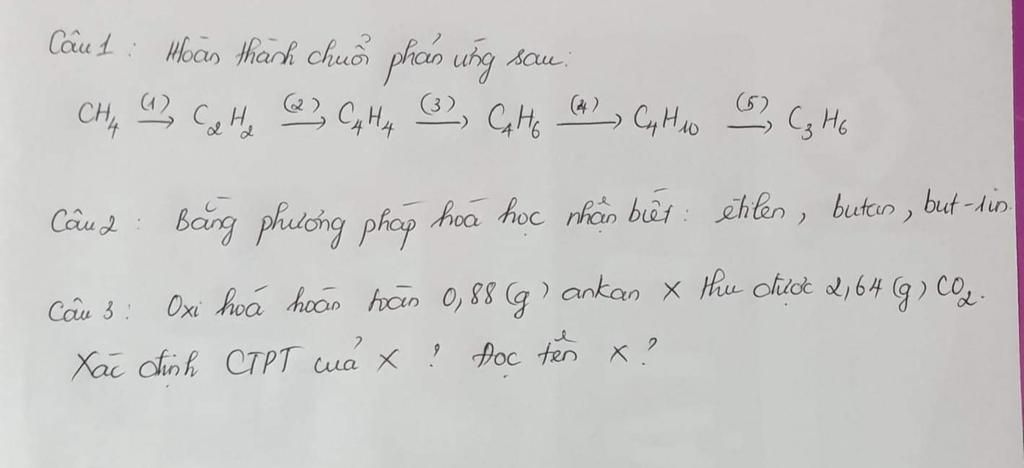 Câu 1 : Hoàn thành chuỗi phản ứng sau:
CH₄ (1)→ C₂H₂ (2)→ C₄H₄ (3)→ C₄H₆ (4)→ C₄H₁₀ (5)→ C₃H₆
Câu 2 : Bằng phương pháp hoá học nhận biết : êtilen, butan, but-1in.
Câu 3 : Oxi hoá hoàn toàn 0,88 (g) ankan X thu được 2,64 (g) CO₂.
Xác định CTPT của X ? Đọc tên X ?